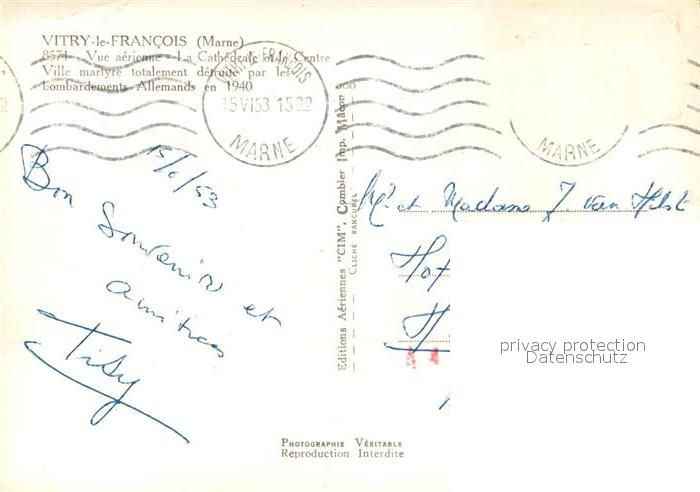 VITRY-le-FRANÇOIS (Marne)
8571 - Vue aérienne - La Cathédrale et le Centre
Ville martyre totalement détruite par les
bombardements Allemands en 1940
15 VI 53 15
MARNE
MARNE
15/6/53
Bon Souvenir et
amitiés
Editions Aériennes "CIM", Combier Imp. Mâcon
CLICHÉ RANCUREL
Mr et Madame J. van
privacy protection
Datenschutz
PHOTOGRAPHIE VÉRITABLE
Reproduction Interdite